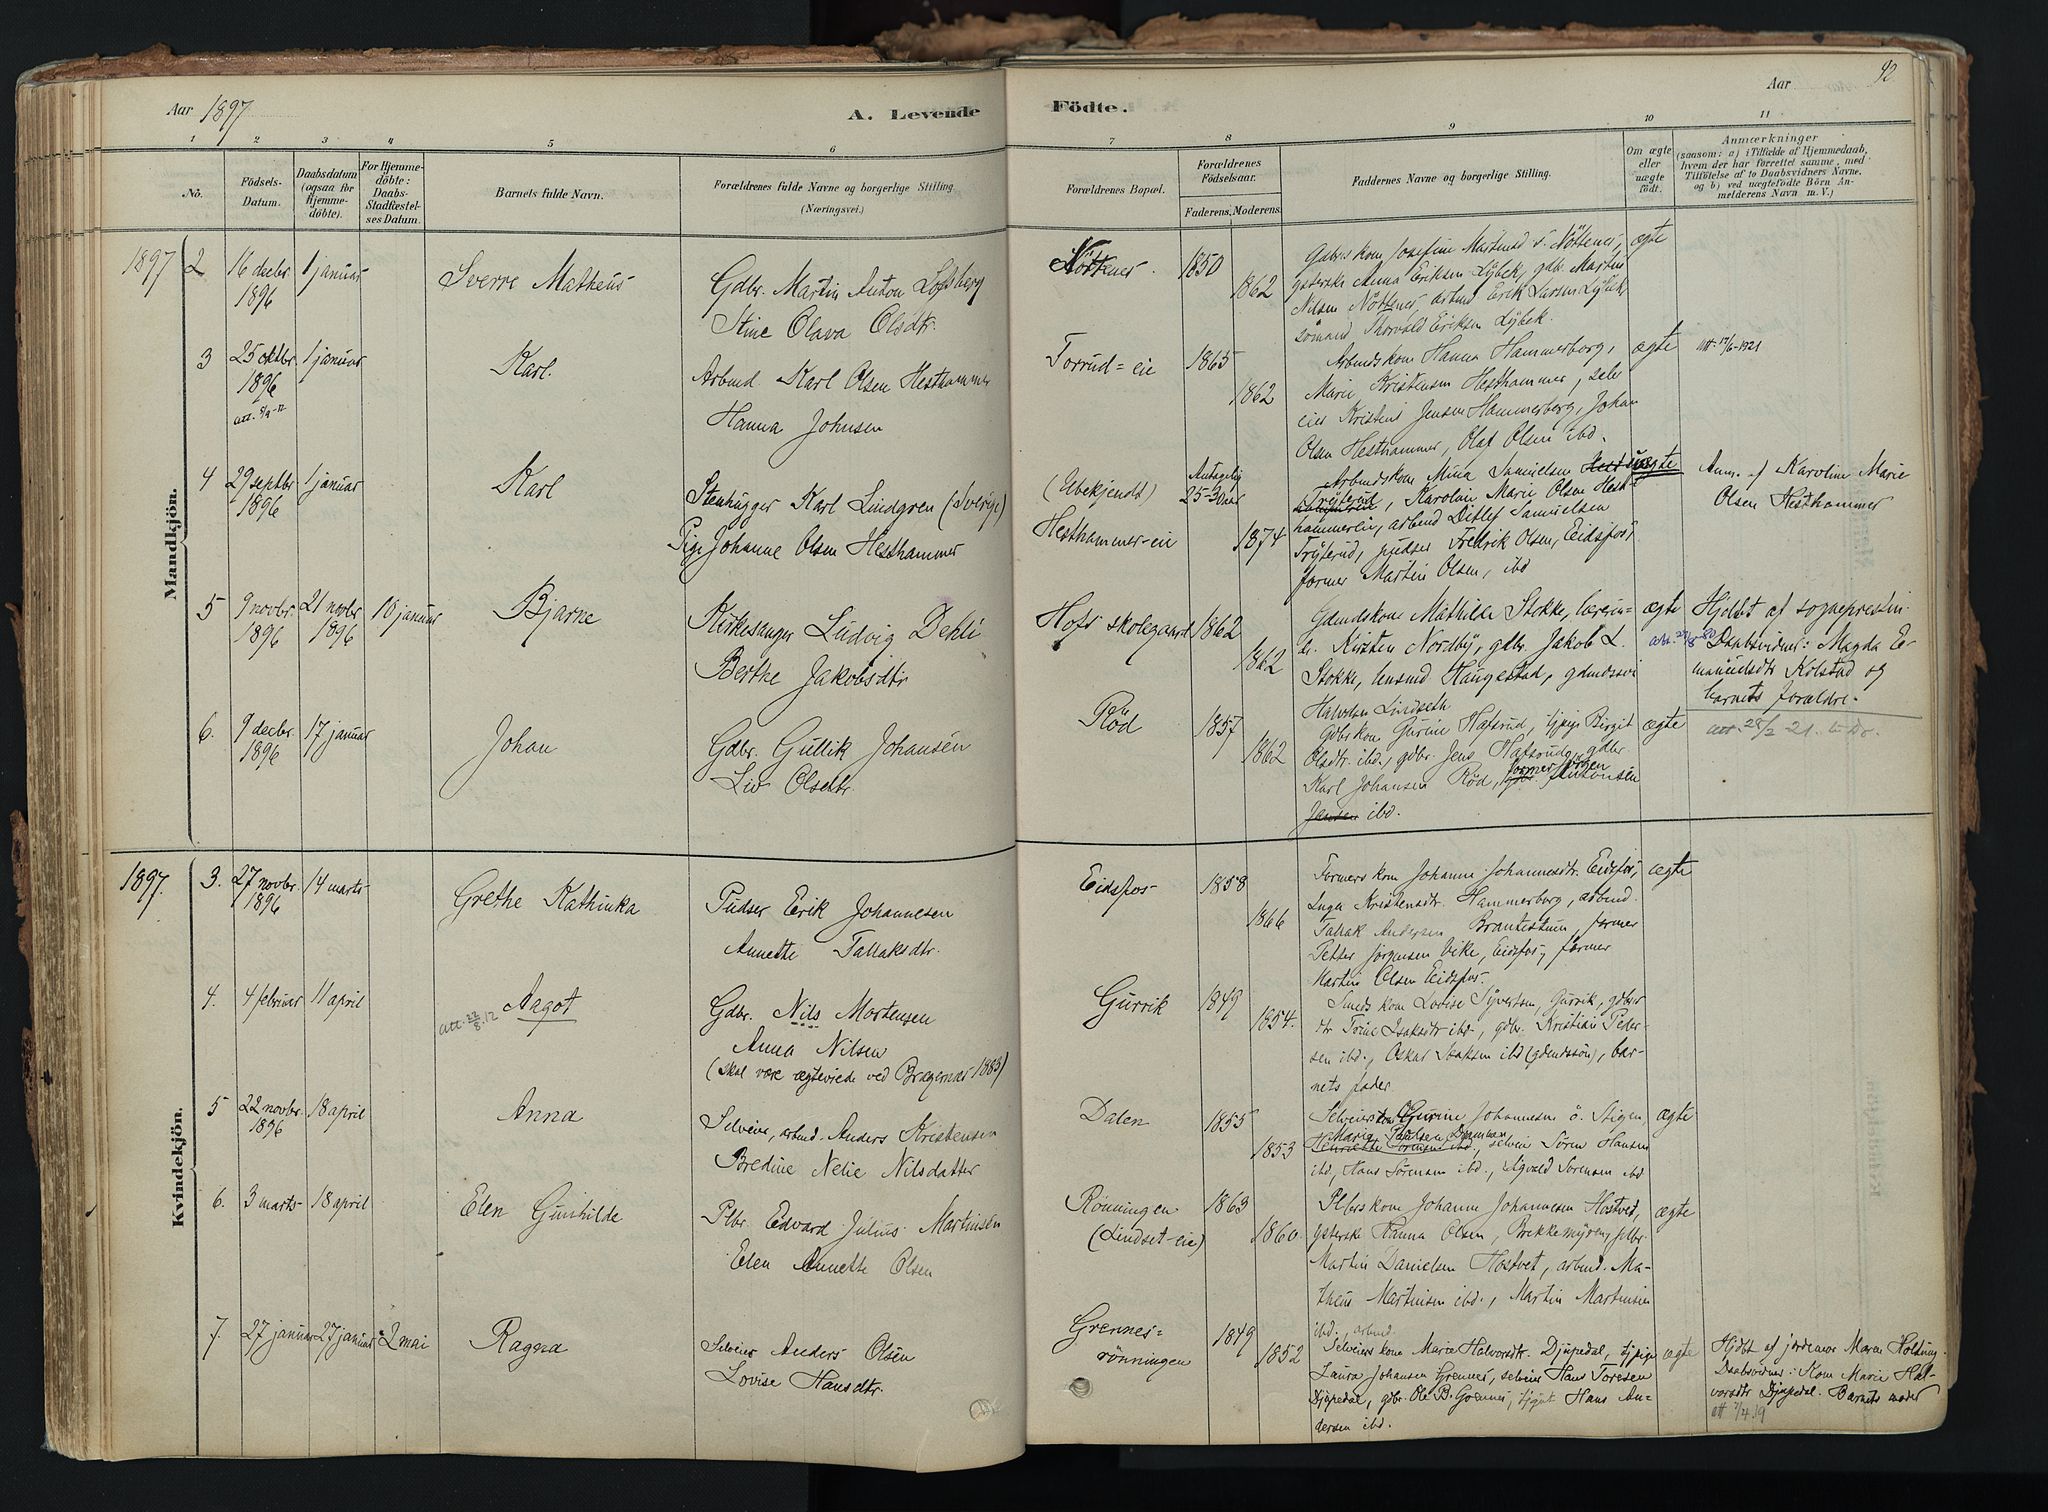 Aar 1897
A. Levende
1 2 3 4 5 6
No.
Födsels-Datum.
Daabsdatum (ogsaa for Hjemme-döbte).
For Hjemme-döbte: Daabs-Stadfæstel-ses Datum.
Barnets fulde Navn.
Forældrenes fulde Navne og borgerlige Stilling.
(Næringsvei.)
Mandkjön.
1897 2 16 decbr. 1896 1 januar Sverre Matheus
Gdbr. Martin Anton Lofsberg
Stine Olava Olsdtr.
3 25 oktbr. 1896 1 januar Karl.
att. 5/9-12
Arbmd. Karl Olsen Hesthammer
Hanna Johnsen
4 29 septbr 1896 1 januar Karl
Stenhugger Karl Lindgren (Sverige)
Pige Johanne Olsen Hesthammer
5 9 novbr. 1896 21 novbr 1896 10 januar Bjarne
Kirkesanger Ludvig Dehli
Berthe Jakobsdtr
6. 9 decbr. 1896 17 januar Johan
Gdbr. Gullik Johansen
Liv Olsdtr.
Kvindekjön.
1897. 3. 27 novbr. 1896 14 marts Grethe Kathinka
Pudser Erik Johannesen
Annette Tallaksdtr.
4. 4 februar 11 april Aagot
att. 22/8.12
Gdbr. Nils Mortensen
Anna Nilsen
(skal være ægteviede ved Bragernæs 1883)
5 22 novbr. 1896 18 april Anna
Selveier, arbmd. Anders Kristensen
Bredine Nelie Nilsdatter
6. 3 marts 18 april Elen Gunhilde
Plbr. Edvard Julius Martinsen
Elen Annette Olsen
7. 27 januar 27 januar 2 mai Ragna
Selveier Anders Olsen
Lovise Hansdtr.
Födte.
Aar 92
7 8 9 10 11
Forældrenes Bopæl.
Forældrenes Födselsaar.
Faderens. Moderens.
Faddernes Navne og borgerlige Stilling.
Om ægte eller uægte födt.
Anmærkninger
(saasom: a) i Tilfælde af Hjemmedaab, hvem der har forrettet samme, med Tilföielse af to Daabsvidners Navne, og b) ved uægtefödte Börn An-melderens Navn m. V.)
Nöttenes. 1850 1862
Gdbrs kom Josefine Martinsd s. Nöttenes, ægte
ysterske Anna Eriksen Lybek, gdb. Martin
Nilsen Nöttenes, arbmd Erik Larsen Lybek
sömand Thorvald Eriksen Lybek.
Forrud-eie 1865 1862
Arbmdskom Hanna Hammerborg, ægte att 17/6-1921
Marie Kristensen Hesthammer, selv
eier Kristian Jensen Hammerberg, Johan
Olsen Hesthammer, Olaf Olsen ibd.
(Ubekjendt) Antagelig 25-30 aar
Hesthammer-eie 1874
Arbmdskom Mina Samuelsen uægte
Tryterud, Karolan Marie Olsen Hest-
hammereie, arbmd Ditlef Samuelsen
Tryterud, pudser Fredrik Olsen, Eidsfos,
former Martin Olsen, ibd
Anm. af Karoline Marie
Olsen Hesthammer
Hofs skolegaard 1862 1862
Gdmdskone Mathilde Stokke, lærerin- ægte
de Kirsten Nordby, gdbr. Jakob L.
Stokke, lensmd Haugestad,
Halvdan Lindseth
Hjdbt af sogneprestin.
Daabsvidner: Magda E-
manuelsdtr Kolstad og
barnets forældre.
Röd 1857 1862
Gdbrskom Gurine Hafsrud, tjpige Birgit ægte
Olsdtr. ibd., gdbr Jens Hafsrud, gdbr.
Karl Johansen Röd, former Jörgen Antonsen
Jansen ibd.
att. 28/2 21.
Eidsfos 1858 1866
Formers kom Johanne Johannesdtr. Eidsfos, ægte
Inga Kristensdtr. Hammerborg, arbmd.
Tallak Andersen, former
Petter Jorgensen Vike, Eidsfos, former
Martin Olsen Eidsfos.
Gurrik 1849 1854.
Smeds kom Lovise Syversen, Gurrik, gdbrd-
dtr Trine Isaksdtr ibd., gdbr. Kristian Peder-
sen ibd., Oskar Isaksen ibd (gdmdssön), bar-
nets fader
Dalen 1855 1853
Selveierskom Gurine Johannesen ö. Stigen, ægte
Maria Paulsen Drammen
Henriette Sorensen ibd., selveier Sören Hansen
ibd, Hans Sörensen ibd., Agvald Sorensen ibd
Rönningen 1863
(Lindset-eie) 1860.
Plbrskom Johanne Johannesen Hostvet, ægte
ysterske Hanna Olsen, Brekkemyren, plbr.
Martin Danielsen Hostvet, arbmd. Ma-
theus Martinsen ibd., Martin Martinsen
ibd., arbmd.
Grennes-
rönningen 1849 1852
Selveiers kone Marie Halvorsdtr. Djupedal, tjpige ægte
Laura Johansen Grennes, selveier Hans Toresen
Djupedal, gdbr. Ole B. Grennes, tjgut Hans An-
dersen ibd.
Hjdbt af jordemor Maren Holtung.
Daabsvidner: Kone Marie Hal-
vorsdtr Djupedal. Barnets moder
att 7/4.19